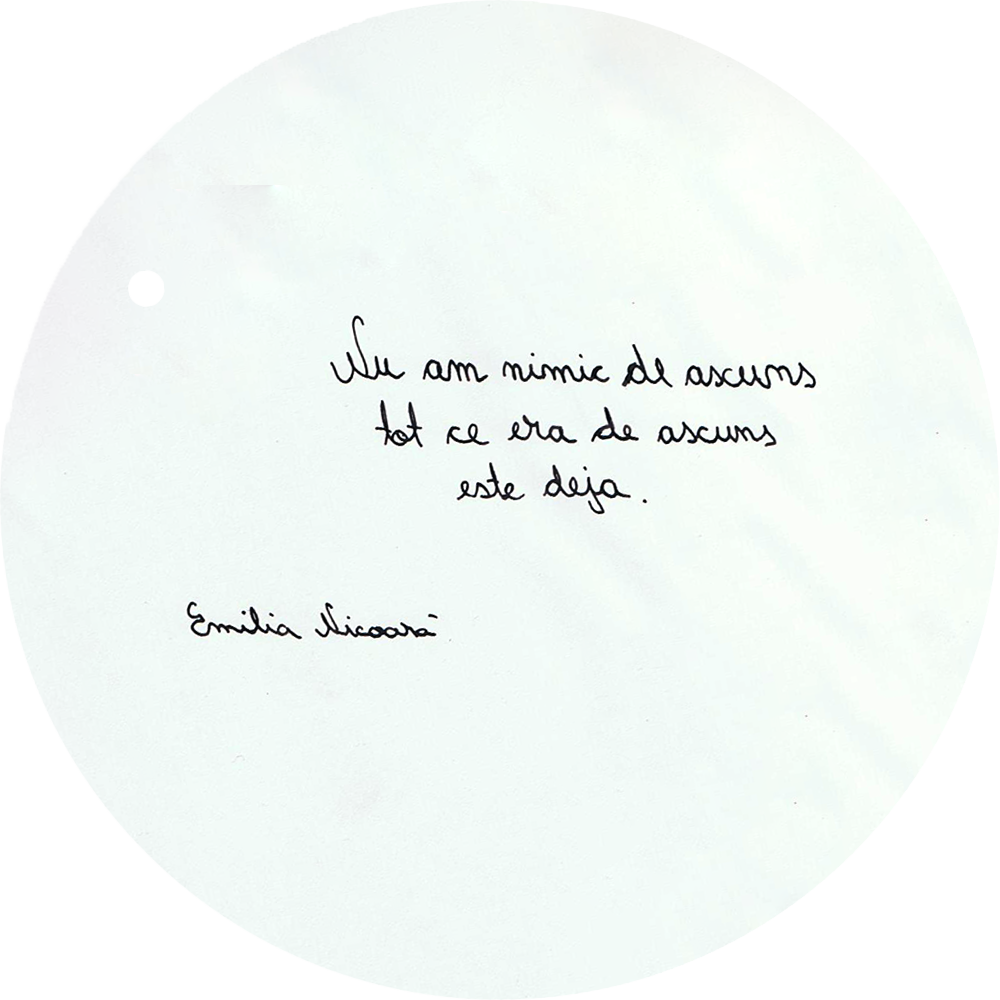 Nu am nimic de ascuns
tot ce era de ascuns
este deja.
Emilia Nicoară